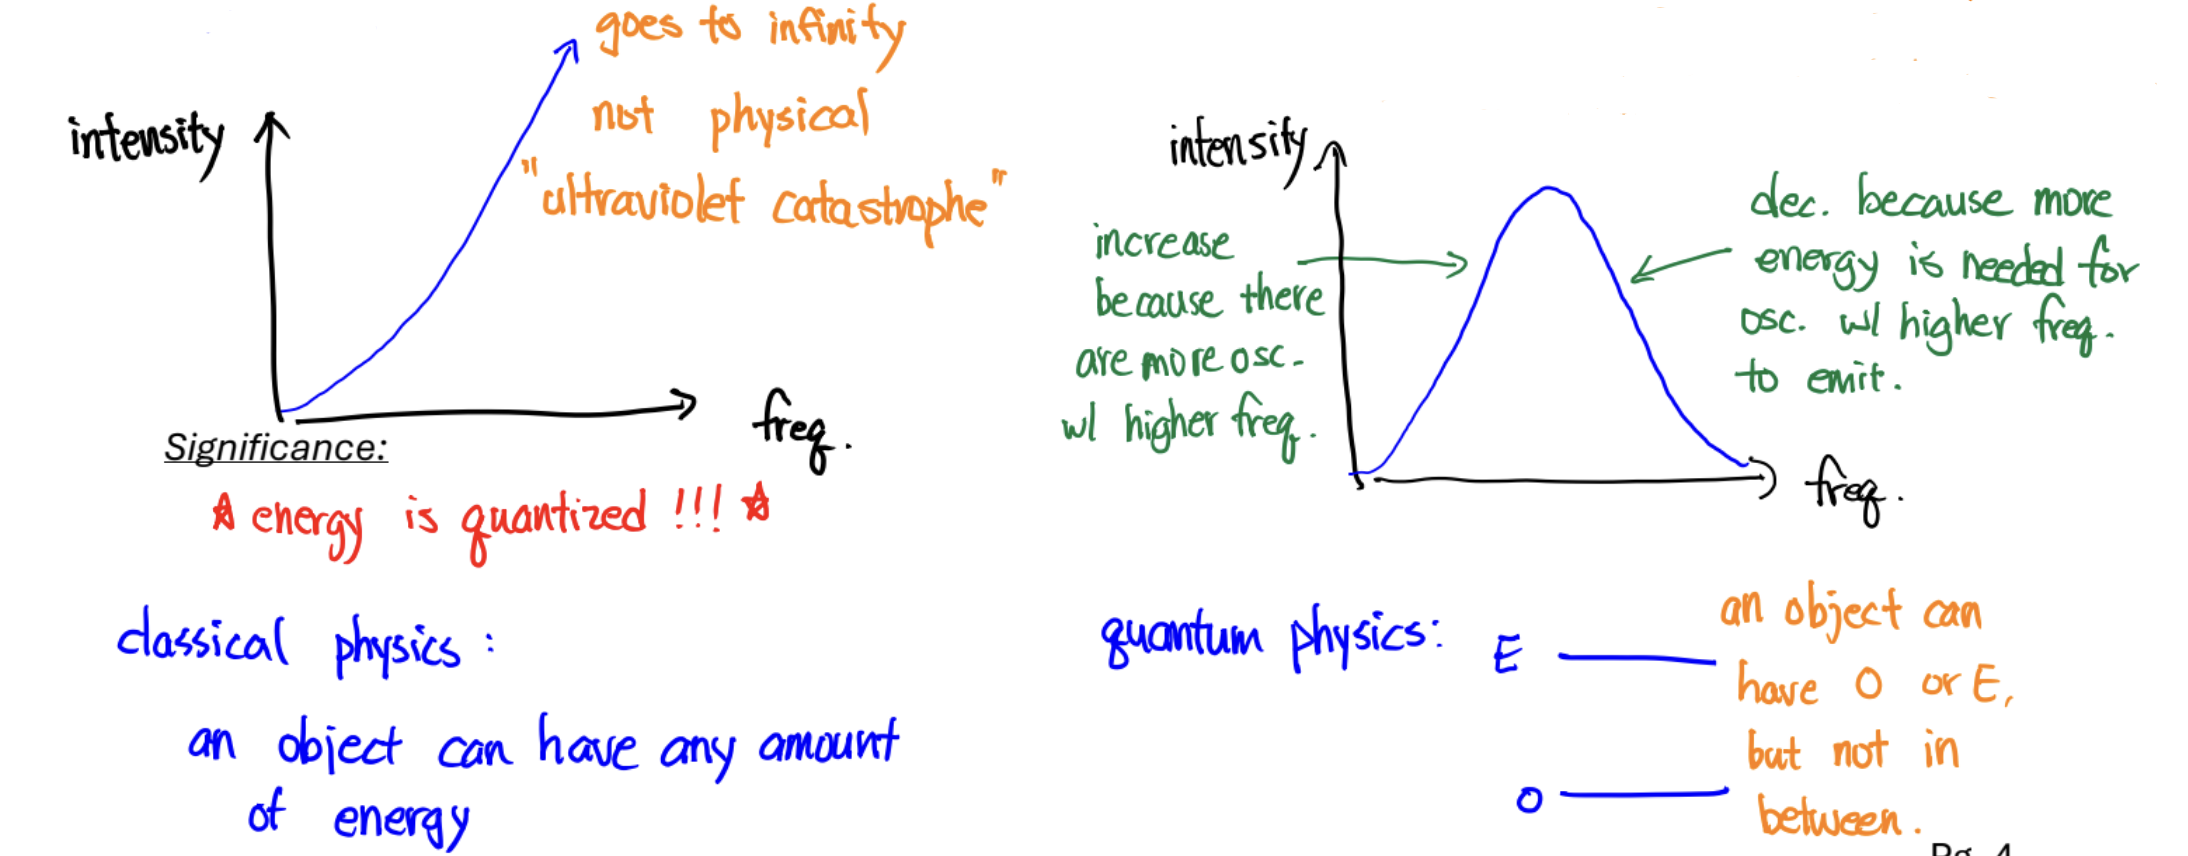 intensity
goes to infinity
not physical
"ultraviolet catastrophe"
freq.
intensity
increase
because there
are more osc.
w/ higher freq.
dec. because more
energy is needed for
osc. w/ higher freq.
to emit.
freq.
Significance:
☆ energy is quantized !!! ☆
classical physics:
an object can have any amount
of energy
quantum physics:
E
O
an object can
have O or E,
but not in
between.
Pg. 4